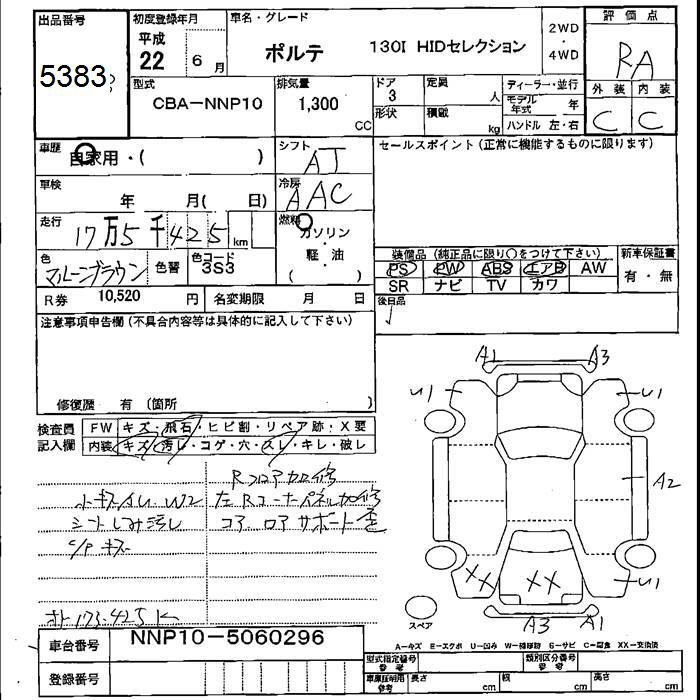 出品番号
5383
初度登録年月
平成
22 6 月
車名・グレード
ポルテ 130I HIDセレクション
2WD
・
4WD
評価点
RA
外装 内装
C C
型式
CBA-NNP10
排気量
1,300
CC
ドア
3
形状
定員
人
積載
kg
ディーラー・並行
モデル年式 年
ハンドル 左・右
車歴
自家用・( )
シフト
AT
車検
年 月( 日)
冷房
AAC
走行
17万5千425 km
燃料
ガソリン
・
軽・油
( )
色
マルーンブラウン
色替
色コード
3S3
R券 10,520 円
名変期限 月 日
セールスポイント(正常に機能するものに限ります)
装備品(純正品に限り○をつけて下さい)
PS PW ABS エアB AW
SR ナビ TV カワ
新車保証書
有・無
後日品
注意事項申告欄(不具合内容等は具体的に記入して下さい)
修復歴 有 (箇所 )
検査員
記入欄
FW キズ・飛石・ヒビ割・リペア跡・X要
内装 キズ・汚レ・コゲ・穴・スレ・キレ・破レ
Rフロア加修
小キズ凹 W2
左Rコーナーパネル加修
シートしみ汚レ
コア ロアサポート歪
C/P キズ
オト173.425K
A1 A3
U1 U1
A2
U1
XX XX
A3 A1
スペア
A-キズ E-エクボ U-凹み W-補修跡 S-サビ C-腐食 XX-交換済
車台番号 NNP10-5060296
登録番号
型式指定番号
参考
類別区分番号
参考
車庫証明用
参考
長さ cm
幅 cm
高さ cm